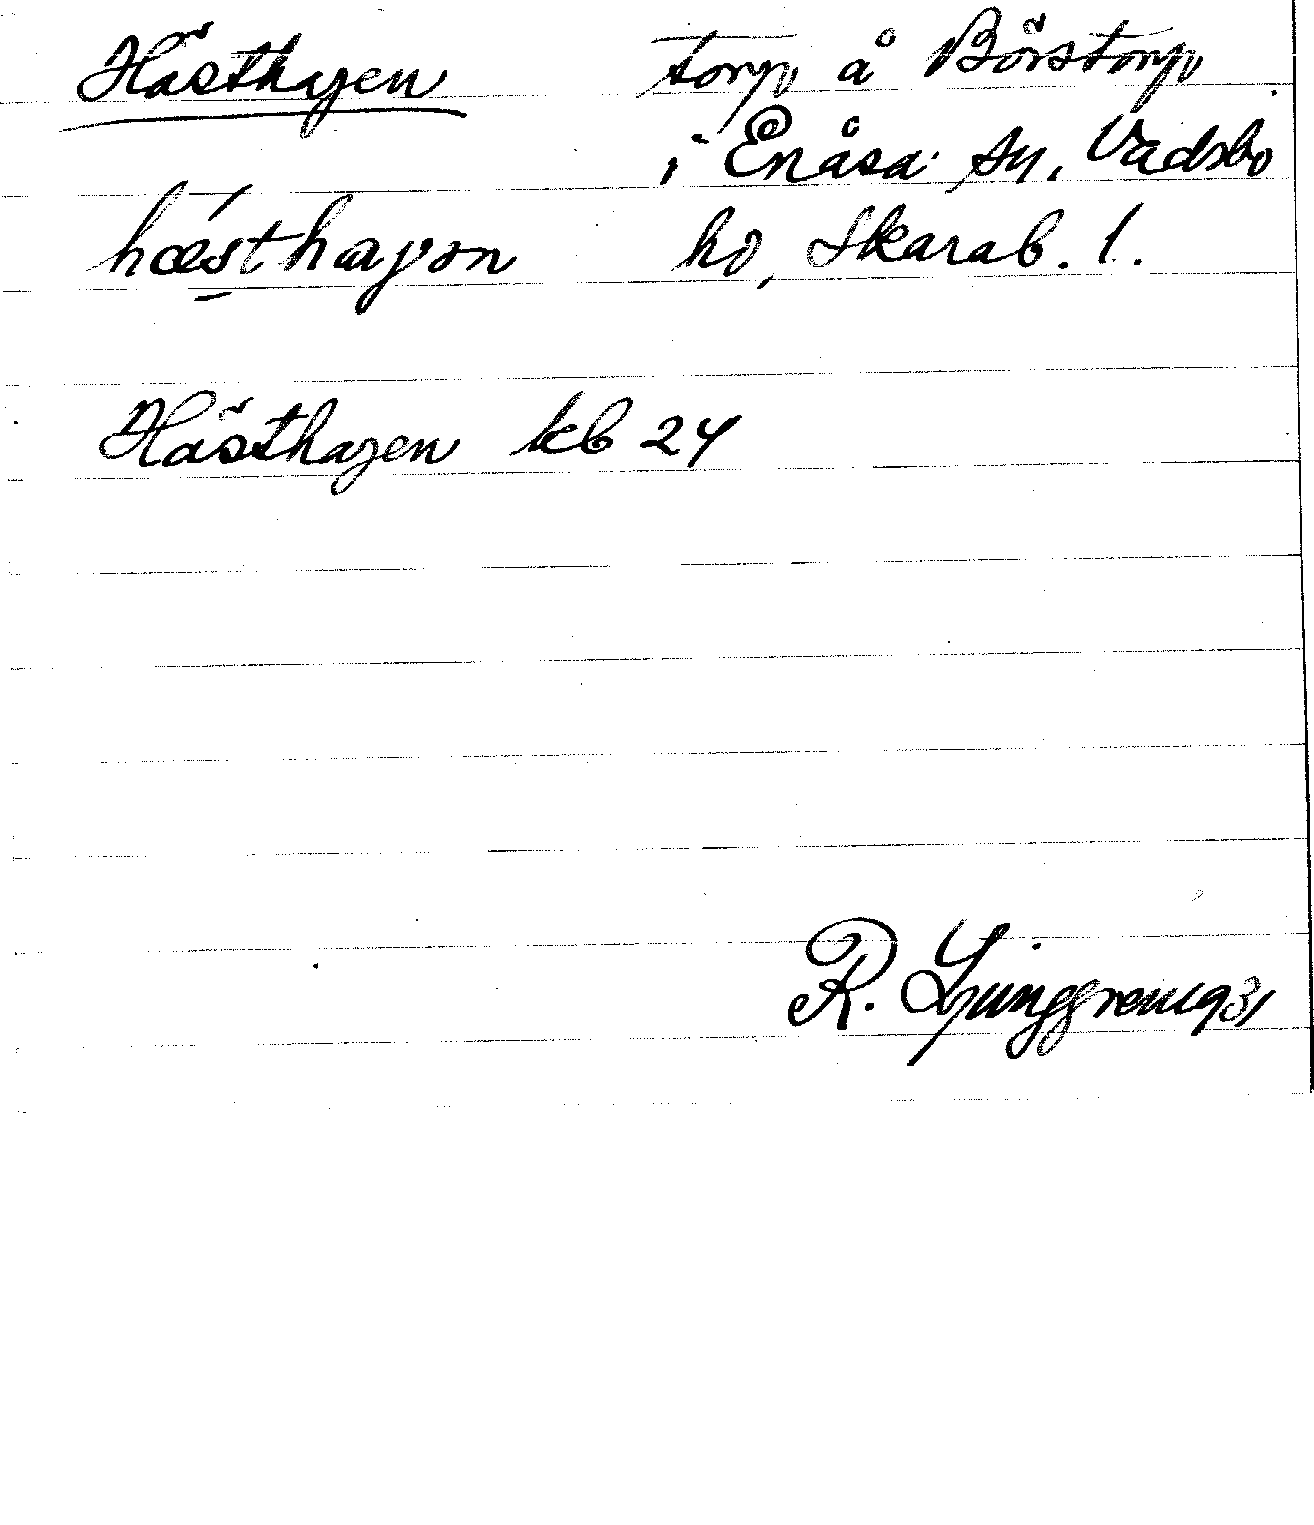 Hästhagen torp å Börstorp
i Enåsa sn, Vadsbo
hæ̀sthaγən hd, Skarab. l.
Hästhagen kb 24
R. Ljunggren 1931